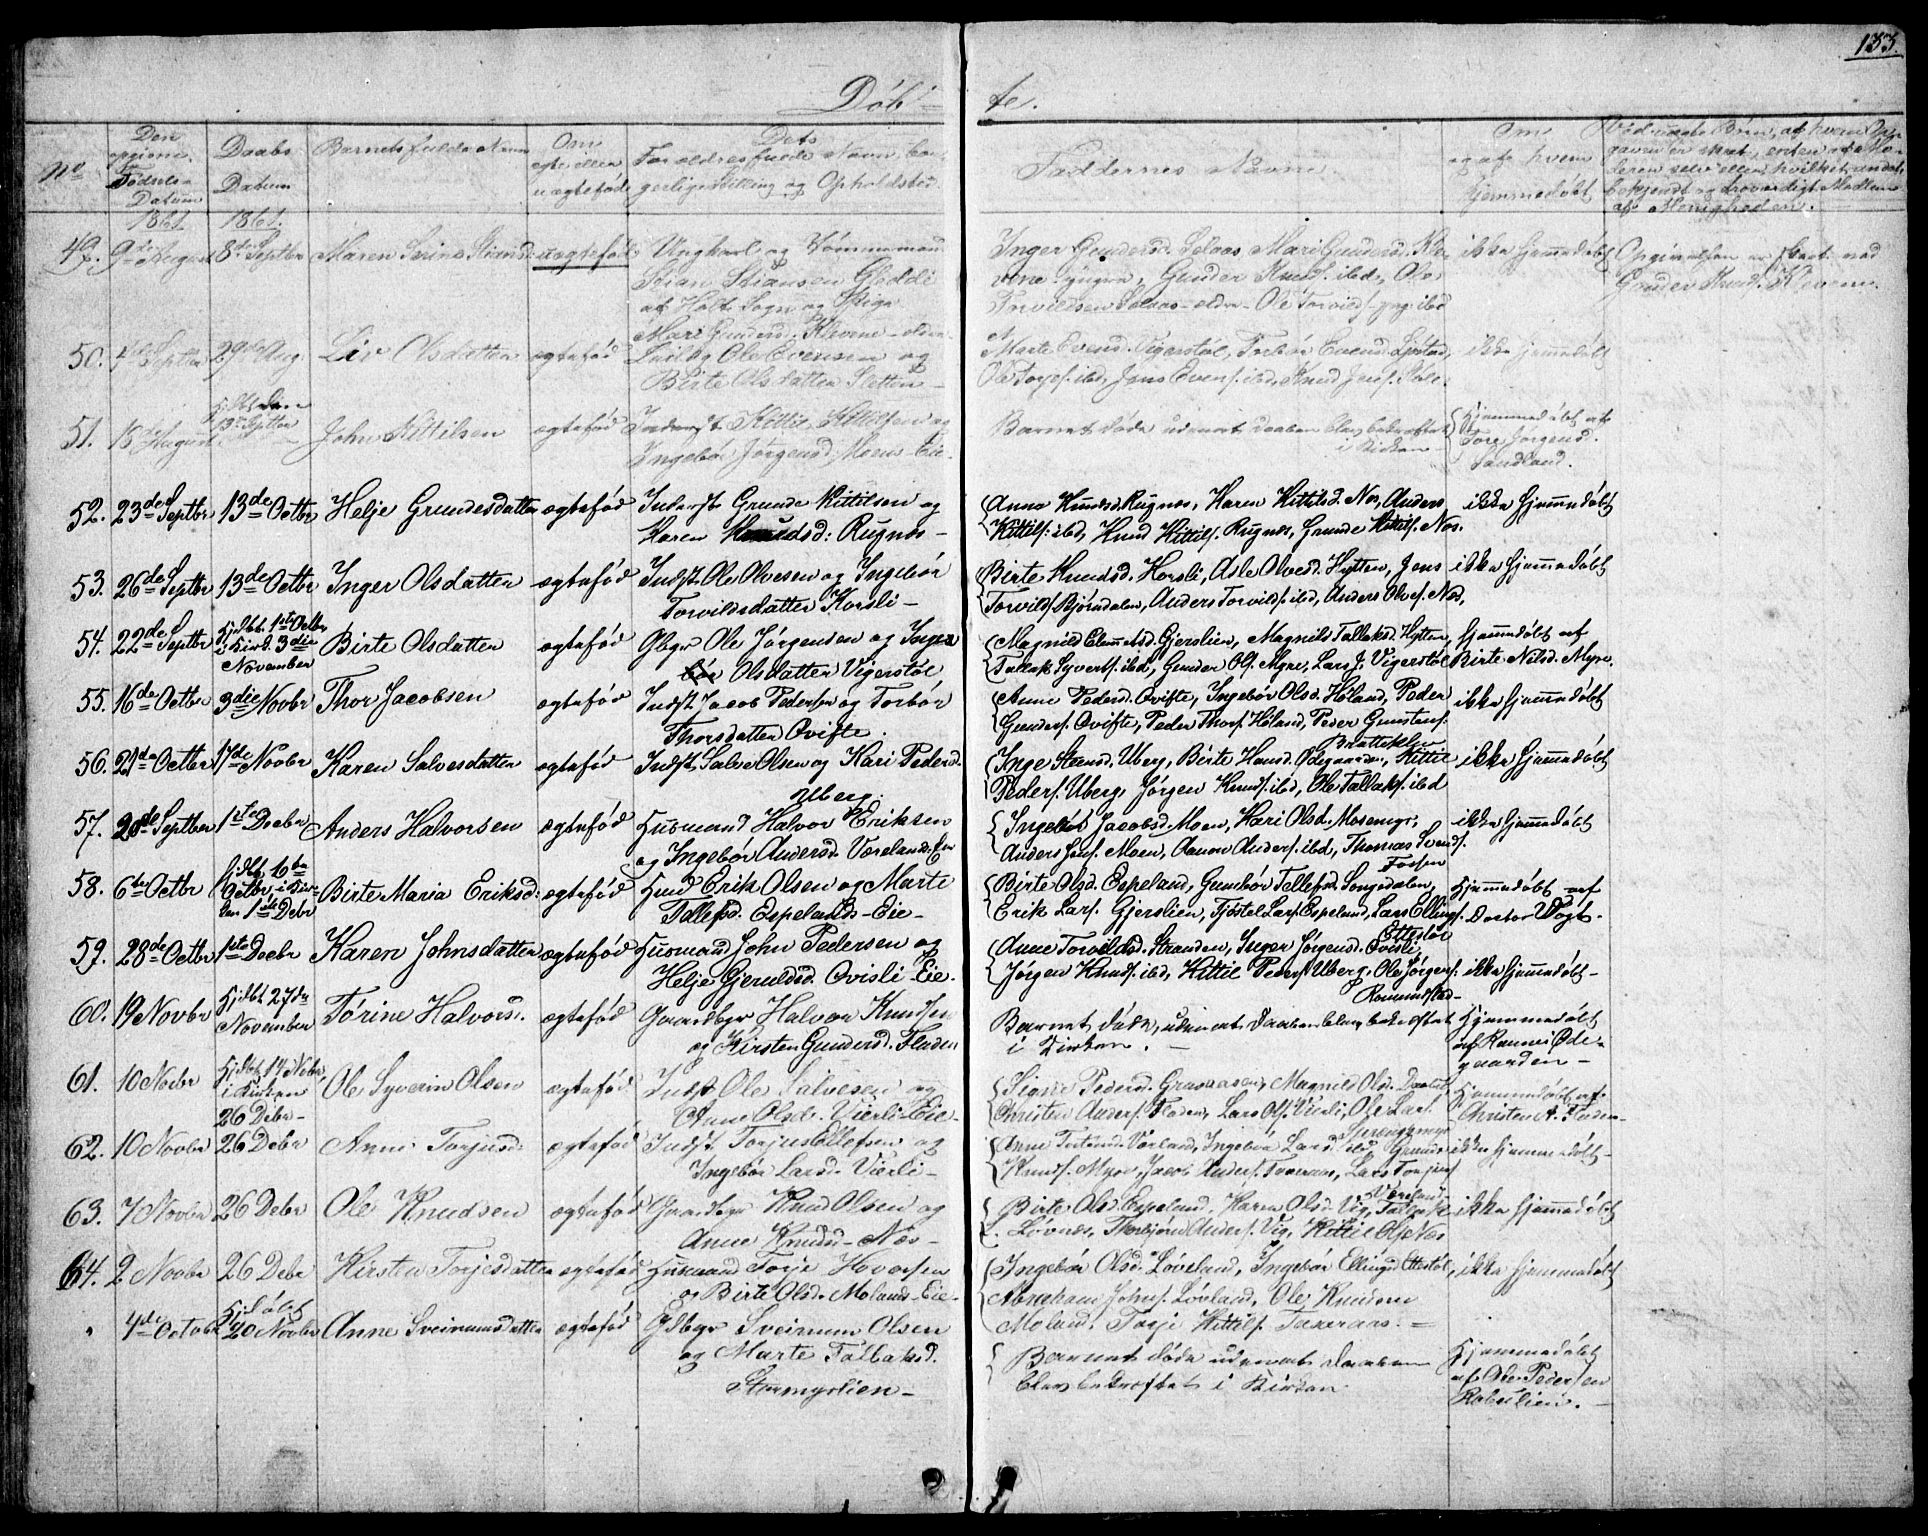 133.
Döb-
te.
No
Den
opgivne
Fødsels-
Datum
Daabs
Datum
Barnets fulde Navn
Om
ægte eller
uægtefød
Dets
Forældres fulde Navn, bor-
gerlige Stilling og Opholdsted.
Faddernes Navne.
Om
og af hvem
hjemmedøbt
af Menigheden.
1861
1861.
49. 9de August 8de Septbr Maren Serine Stiansd: uægtefød Ungkarl og Tømmermand
Stian Stiansen Glødde
af Holt Sogn og
Mari Gundersd. Klevene - eldre
Inger Gundersd. Selaas Mari Gundersd. Kle-
vene yngre, Gunder Knuds. ibd, Ole
Torvildsen Selaas - eldre - Ole Torvids. yng. ibd
ikke hjemmedøbt
Opgivelsen er skeet ved
Gunder Knuds. Klevene.
50. 4de Septbr 29de Aug. Liv Olsdatter ægtefød Ole Evensen og
Birte Olsdatter Sletten -
Marte Evensd. Vigerstøl, Torbør Evensd.
Ole Torjes. ibd, Jens Evens. ibd, Knud Jens.
ikke hjemmedøbt
51. 18de August
Hjdbt den
13de Septbr
John Kittilsen ægtefød Inderst Kittil Kittelsen og
Ingebør Jørgensd. Moens-Eie-
Barnet døde udenat daaben blev bekræftet
i Kirken -
Hjemmedøbt af
Tore Jørgensd.
Sandland.
52. 23de Septbr 13de Octbr Helje Grundesdatter ægtefød Inderst Grunde Kittilsen og
Karen Knudsd: Rugnes -
Anna Knudsd. Rugnes, Karen Kittilsd. Nes, Anders
Kittils. ibd, Knud Kittils. Rugnes, Grunde Kittils. Nes.
ikke hjemmedøbt
53. 26de Septbr 13de Octbr Inger Olsdatter ægtefød Indst Ole Olvesen og Ingebør
Torvildsdatter Korsli -
Birte Knudsd. Korsli, Asle Olvesd. Hytten, Jens
Torvilds. Bjørndalen, Anders Torvilds. ibd, Anders Olves. Nes,
ikke hjemmedøbt
54. 22de Septbr
Hjdbt. 1ste Octbr
i Kirk. 3die
November
Birte Olsdatter ægtefød Gbgr Ole Jørgensen og Inge-
bør Olsdatter Vigerstøl,
Magnild Clemetsd. Gjerslien, Magnild Tallaksd. Hytten,
Tallak Syverts. ibd, Gunder Ols. Myre, Lars J. Vigerstøl
hjemmedøbt af
Birte Nilsd. Myre.
55. 16de Octbr 3die Novbr Thor Jacobsen ægtefød Indst Jacob Pedersen og Torbør
Thorsdatter Ovifte.
Anne Pedersd. Ovifte, Ingebør Olsd. Høland, Peder
Gunders. Ovifte, Peder Thors. Høland, Peder Gunstens.
Brattekleiv
ikke hjemmedøbt
56. 21de Octbr 17de Novbr Karen Salvesdatter ægtefød Indst. Salve Olsen og Kari Pedersd.
Uberg.
Inge Steensd. Uberg, Birte Hansd. Ødegaarden, Kittil
Peders. Uberg, Jørgen Knuds. ibd, Ole Tallaks. ibd
ikke hjemmedøbt
57. 20de Septbr 1ste Decbr Anders Halvorsen ægtefød Husmand Halvor Eriksen
og Ingebør Andersd. Værelands-Eie
Ingebør Jacobsd. Moen, Kari Olsd. Mosemyr,
Anders Jens. Moen, Aanon Anders. ibd, Thomas Svends.
Fossen
ikke hjemmedøbt
58. 6te Octbr
hjdbt 16de
Octbr - i Kir-
ken 1ste Debr
Birte Maria Eriksd: ægtefød Husmd Erik Olsen og Marte
Tellefsd. Espelands-Eie-
Birte Olsd. Espeland, Gunbør Tellefsd. Songedalen,
Erik Lars. Gjerslien, Tjøstel Lars. Espeland, Lars Ellings.
Ettestøl
Hjemmedøbt af
Doctor Vogt.
59. 28de Octbr 1ste Decbr Karen Johnsdatter ægtefød Husmand John Pedersen og
Helje Gjeruldsd. Ovisli-Eie.
Anne Torvildsd. Stranden, Inger Jørgensd. Ovisli,
Jørgen Knuds. ibd, Kittil Peders. Uberg. Ole Jørgens.
Romundstad-
ikke hjemmedøbt -
60. 19 Novbr
Hjdbt 27de
November
Tørine Halvorsd. ægtefød Gaardbgr Halvor Knudsen
og Kirsten Gundersd. Fladen
Barnet døde, udenat Daaben blev bekræftet
i Kirken. -
Hjemmedøbt
af Rannei Øde-
gaarden -
61. 10 Novbr
Hjdbt 14 Novbr,
i Kirken
26 Debr-
Ole Syverin Olsen ægtefød Indst Ole Salvesen og
Anne Olsd. Vierli-Eie-
Signe Pedersd. Gravaasen, Magnild Olsd.
Christen Anders. Fladen, Lars Ols. Vierli, Ole Lars.
Sprenghmyr
Hjemmedøbt af
Christen A. Fladen-
62. 10 Novbr 26 Debr Anne Torjusd. ægtefød Indst. Torjus Ellefsen og
Ingebør Larsd. Vierli -
Anne Væreland, Ingebør Larsd. ibd, Grunde
Knuds. Myre, Jacob Anders. Lars Torjus.
Væreland
ikke hjemmedøbt -
63. 7 Novbr 26 Debr Ole Knudsen ægtefød Gaardbgr Knud Olsen og
Anne Knudsd. Næs -
Birte Olsd. Espeland, Karen Olsd. Vig, Tallak
Løvnes, Thorbjørn Anders. Vig, Kittil Ols. Næs
ikke hjemmedøbt
64. 2 Novbr 26 Debr Kirsten Torjesdatter ægtefød Husmand Torje Hovorsen
og Birte Olsd. Molands-Eie-
Ingebør Olsd. Løveland, Ingebør Ellingsd. Ettestøl,
Abraham Johns. Løvland, Ole Knudsen
Moland, Torje Kittils. Taxeraas. -
ikke hjemmedøbt
4de October
Hjdøbt
20 Novbr
Anne Sveinumsdatter ægtefød Gdbgr Sveinum Olsen
og Marte Tallaksd.
Stormyrlien -
Barnet døde udenat Daaben
blev bekræftet i Kirken.
Hjemmedøbt
af Ole Pedersen
Robulien. -